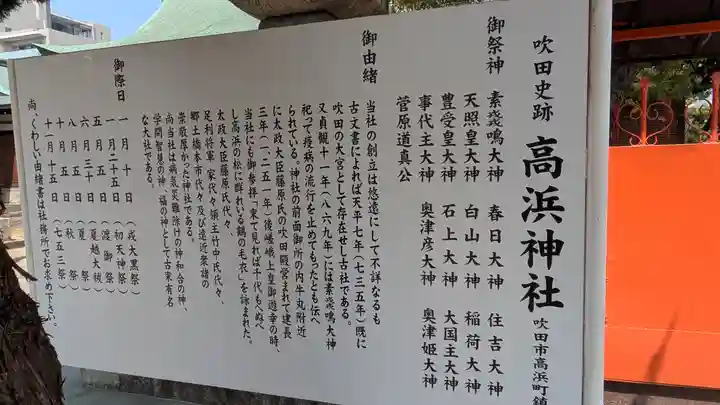 吹田史跡 高浜神社 吹田市高浜町鎮
御祭神 素盞嗚大神 春日大神 住吉大神
天照皇大神 白山大神 稲荷大神
豊受皇大神 石上大神 大国主大神
事代主大神 奥津彦大神 奥津姫大神
菅原道真公
御由緒
当社の創立は悠遠にして不詳なるも
古文書によれば天平七年(七三五年)既に
吹田の大宮として存在せし古社である。
又貞観十一年(八六九年)には素盞鳴大神
祀って疫病の流行を止めてもったとも伝へ
られている。神社の前面御所の内牛丸附近
に太政大臣藤原氏の吹田殿営まれて建長
三年(一二五一年)後嵯峨上皇御遊幸の時、
当社にも御参拝「来て見れば千代もへぬべ
し高浜の松に群れいる鶴の毛衣」を詠まれた。
太政大臣藤原氏代々、
足利将軍家代々領主竹中氏代々、
郷土橋本市代々及び遠近衆諸の
崇敬厚かった神社である。
尚当社は病気災難除けの神和合の神、
学問智見の神、福の神として古来有名
な大社である。
御際日
一月十日 (戎大黒祭)
一月二十五日 (初天神祭)
五月五日 (渡御祭)
六月三十日 (夏越大祓)
八月一日 (夏祭)
十月十五日 (秋祭)
十一月十五日 (七五三祭)
尚、くわしい由緒書は社務所でお求め下さい。